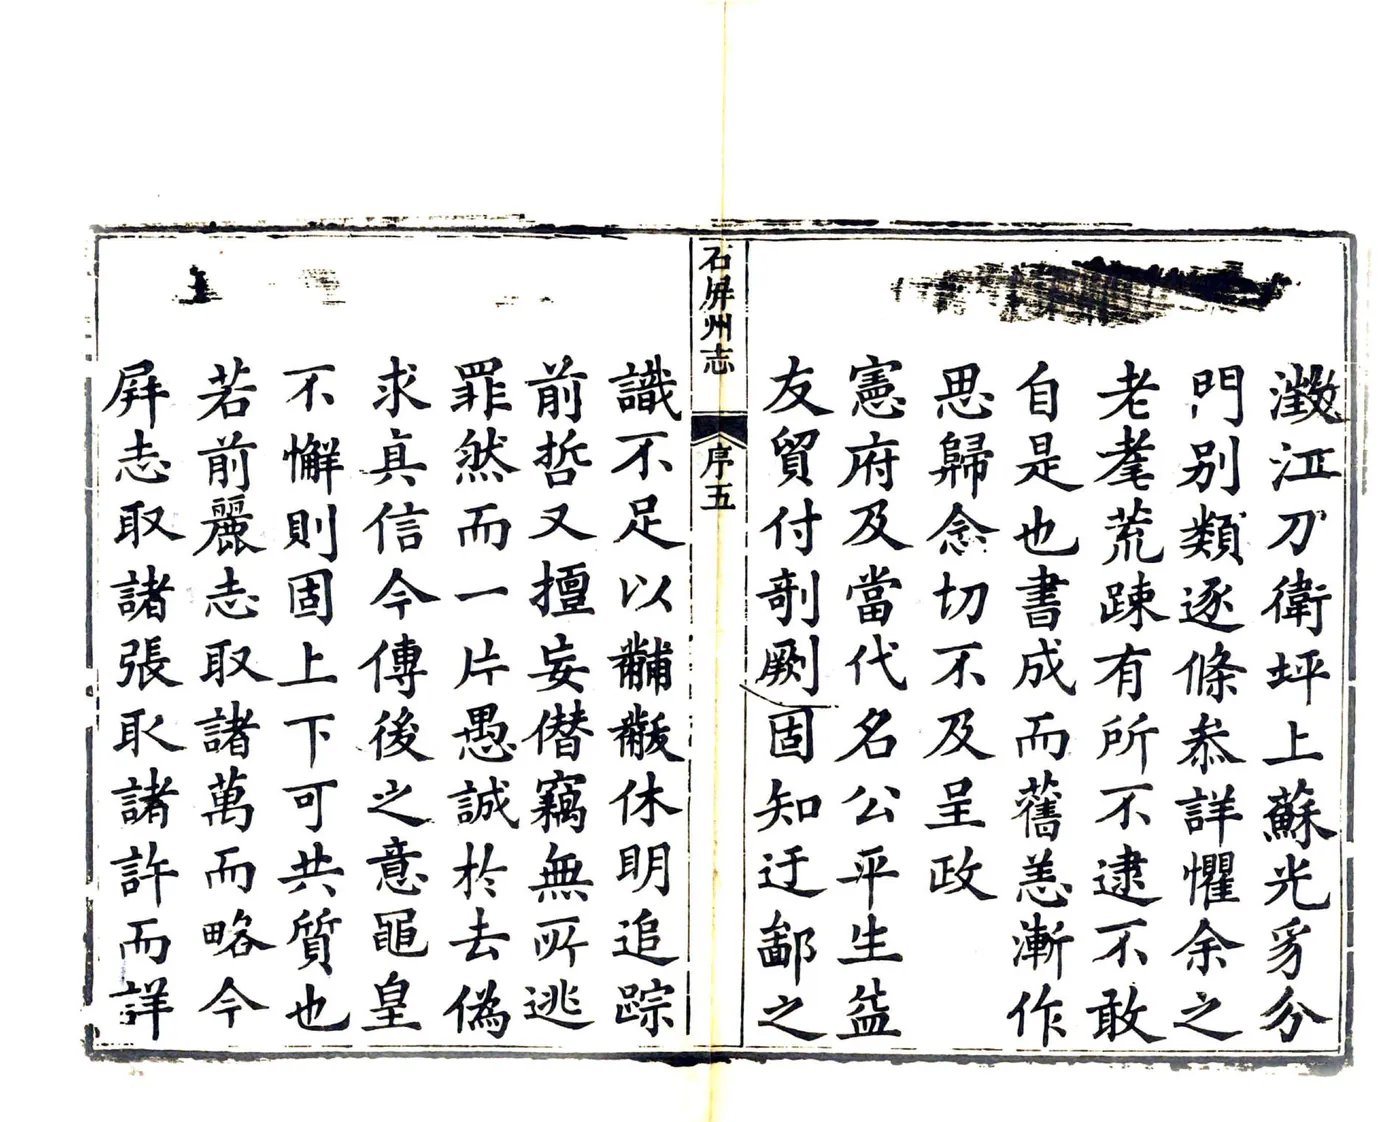 澂江刀衛坪上蘇光豸分
門別類逐條叅詳懼余之
老耄荒踈有所不逮不敢
自是也書成而舊恙漸作
思歸念切不及呈政
憲府及當代名公平生益
友貿付剞劂固知迂鄙之
石屏州志
序五
識不足以黼黻休明追踪
前哲又擅妄僣竊無所逃
罪然而一片愚誠於去偽
求真信今傳後之意黽皇
不懈則固上下可共質也
若前麗志取諸萬而略今
屏志取諸張取諸許而詳